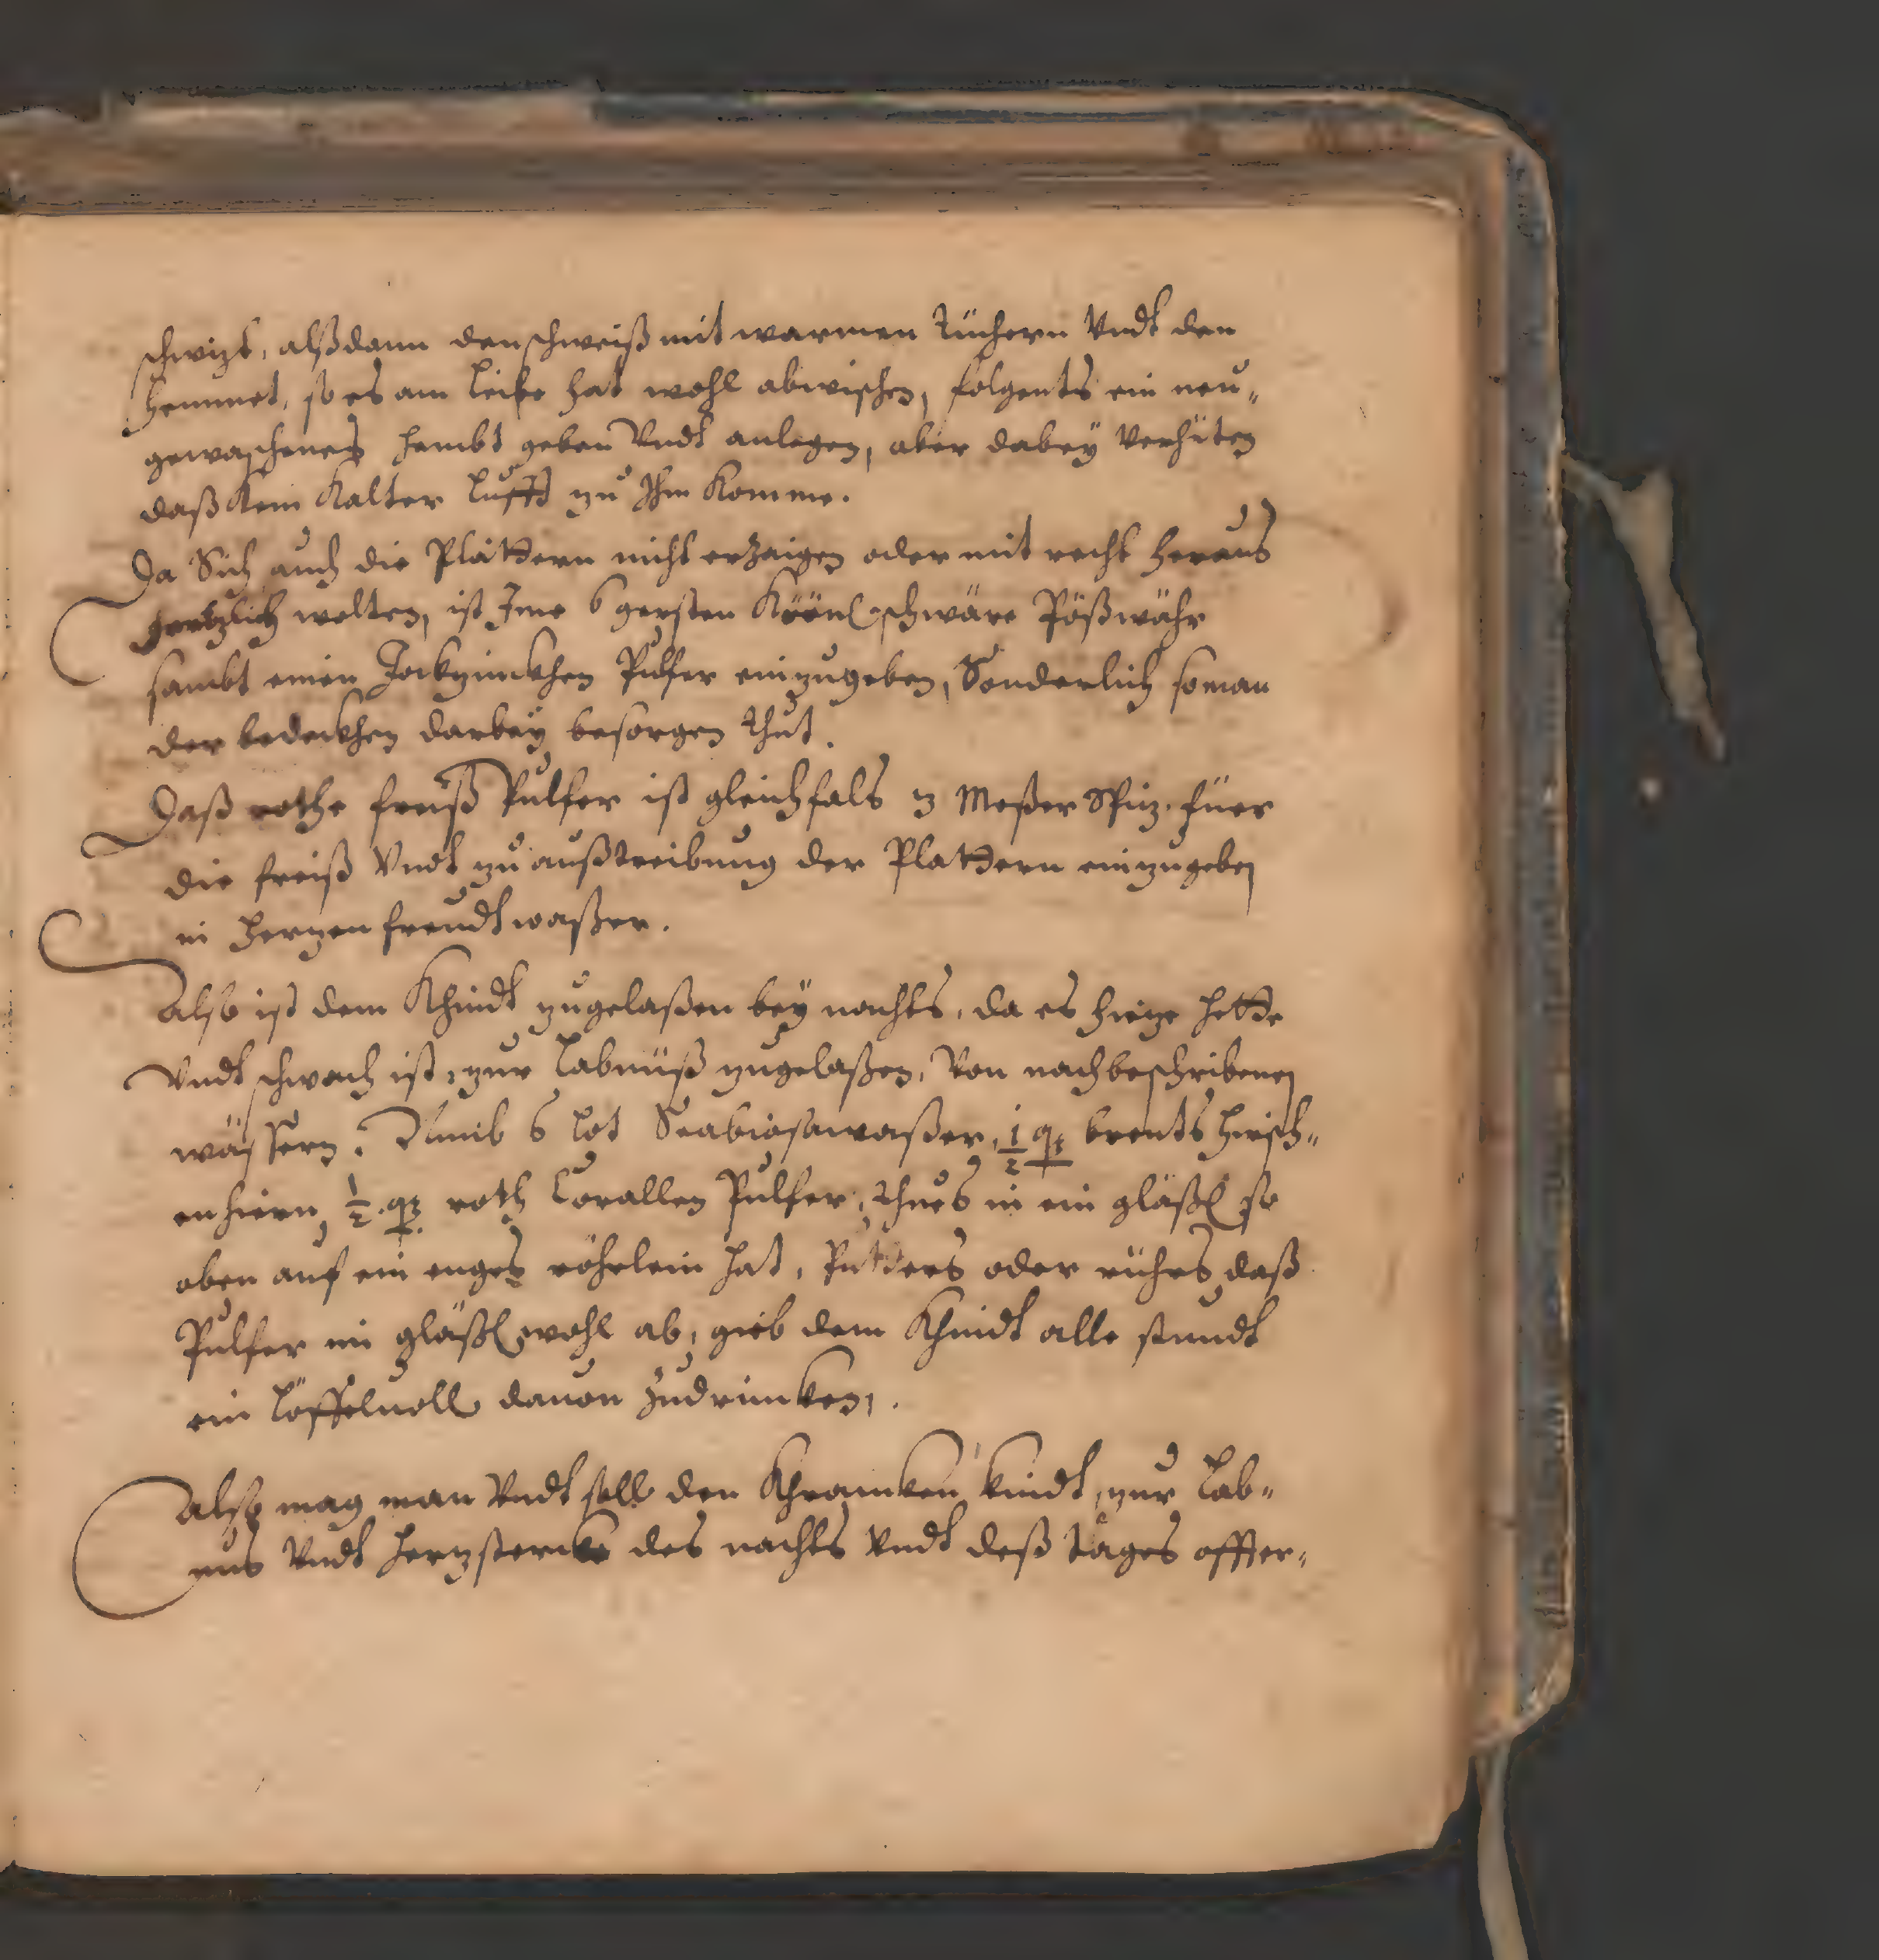 schwizt, alßdann den schweiß mit warmen Tüchern Vndt den
hemmet, so es am Leibe hat wohl abwischen, folgents ein neu„
gewaschenes hembt geben Vndt anlegen, aber dabeÿ Verhüten
daß Kein Kalter Lufft zu Ihm Komme.
Da Sich auch die Plattern nicht erzaigen oder mit recht heraus
wolten, ist Ime 6 gersten schwäre
sambt einen Pulfer einzugeben, Sonderlich so man
der darbeÿ besorgen thut.
Daß rothe freiß Pulfer ist gleichfals 3 Meßer Spitz. füer
die freiß Vndt zu außtreibung der Plattern einzugeben
in Herzen freudt waßer.
Also ist dem Khindt zugelaßen beÿ nachts, da es hieze hette
Vndt schwach ist, zur Labnüß zugelaßen, Von nachbeschribenen
wässern. Nimb 6 Lot Scabiosawaßer, ½ brents hirsch„
enhiern, ½ roth Corallen Pulfer, thues in ein gläßl so
oben auf ein enges röhrlein hat, oder rührs daß
Pulfer im gläßl wohl ab, gieb dem Khindt alle stundt
ein Löffeluoll dauon zudrincken.
also mag man Vndt soll den Khrancken kindt, zur Lab„
nus Vndt hertzstercke des nachts Vndt deß tages offter„